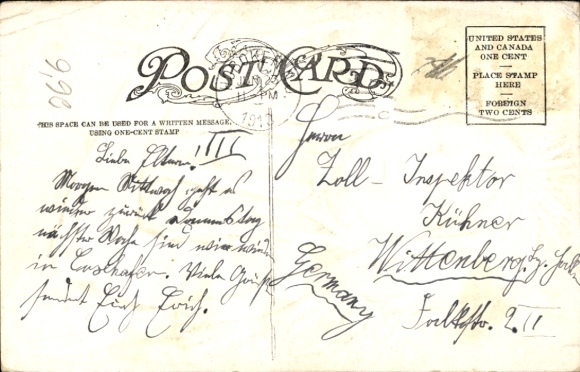 996
POST CARD
HOBOKEN
1913
UNITED STATES
AND CANADA
ONE CENT
PLACE STAMP
HERE
FOREIGN
TWO CENTS
THIS SPACE CAN BE USED FOR A WRITTEN MESSAGE,
USING ONE-CENT STAMP
III
Liebe Eltern!
Morgen Mittwoch geht es
wieder zurück Donnerstag
nächster Woche sind wir wieder
in Cuxhafen. Viele Grüße
sendet Euch Erich.
Herrn
Zoll-Inspektor
Kühner
Wittenberg. Bz. Halle
Germany
Falkstr. 2. II